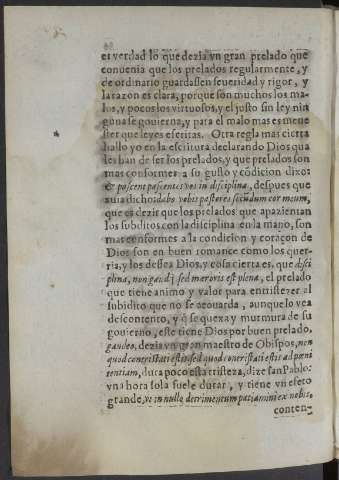 es verdad lo que dezia vn gran prelado que
conuenia que los prelados regularmente, y
de ordinario guardassen seueridad y rigor, y
la razon es clara, porque son muchos los ma-
los, y pocos los virtuosos, y el justo sin ley nin
guna se gouierna, y para el malo mas es mene
ster que leyes escritas. Otra regla mas cierta
hallo yo en la escritura declarando Dios qua
les han de ser los prelados, y que prelados son
mas conformes a su gusto y cōdicion dixo:
et pascent pascentes vos in disciplina, despues que
auia dicho: dabo vobis pastores secundum cor meum,
que es dezir que los prelados que apazientan
los subditos con la disciplina en la mano, son
mas conformes a la condicion y coraçon de
Dios son en buen romance como los quer-
ria, y los dessea Dios, y cosa cierta es, que disci
plina, non gaudij sed mæroris est plena, el prelado
que tiene animo y valor para entristezer al
subdito que no se acouarda, aunque lo vea
descontento, y q̃ se quexa y murmura de su
gouierno, este tiene Dios por buen prelado,
gaudeo, dezia vn gran maestro de Obispos, non
quod contristati estis, sed quod contristati estis ad pœni
tentiam, dura poco esta tristeza, dize san Pablo:
vna hora sola suele durar, y tiene vn efeto
grande, vt in nullo detrimentum patiamini ex nobis,
conten-